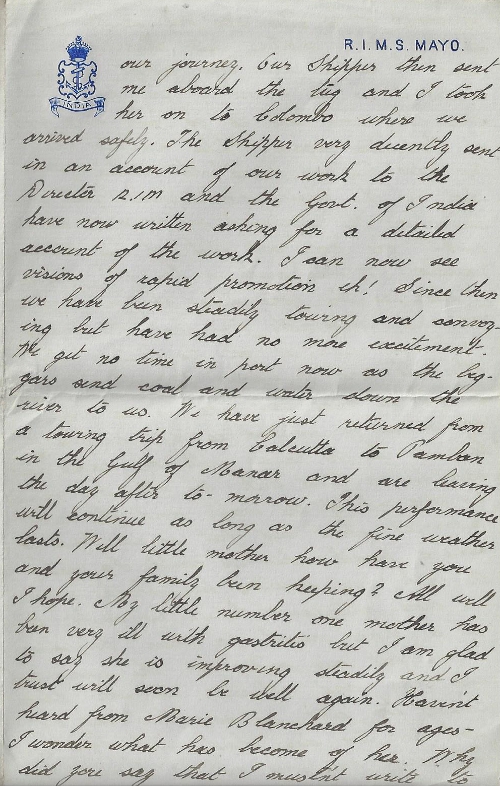 R.I.M.S. MAYO.
INDIA
our journey. Our Skipper then sent
me aboard the tug and I took
her on to Colombo where we
arrived safely. The Skipper very decently sent
in an account of our work to the
Director R.I.M and the Govt. of India
have now written asking for a detailed
account of the work. I can now see
visions of rapid promotion eh! Since then
we have been steadily towing and convoy-
ing but have had no more excitement.
We get no time in port now as the beg-
gars send coal and water down the
river to us. We have just returned from
a towing trip from Calcutta to Pamban
in the Gulf of Manar and are leaving
the day after to-morrow. This performance
will continue as long as the fine weather
lasts. Well little mother how have you
and your family been keeping? All well
I hope. My little number one mother has
been very ill with gastritis but I am glad
to say she is improving steadily and I
trust will soon be well again. Haven't
heard from Marie Blanchard for ages-
I wonder what has become of her. Why
did you say that I musn't write to